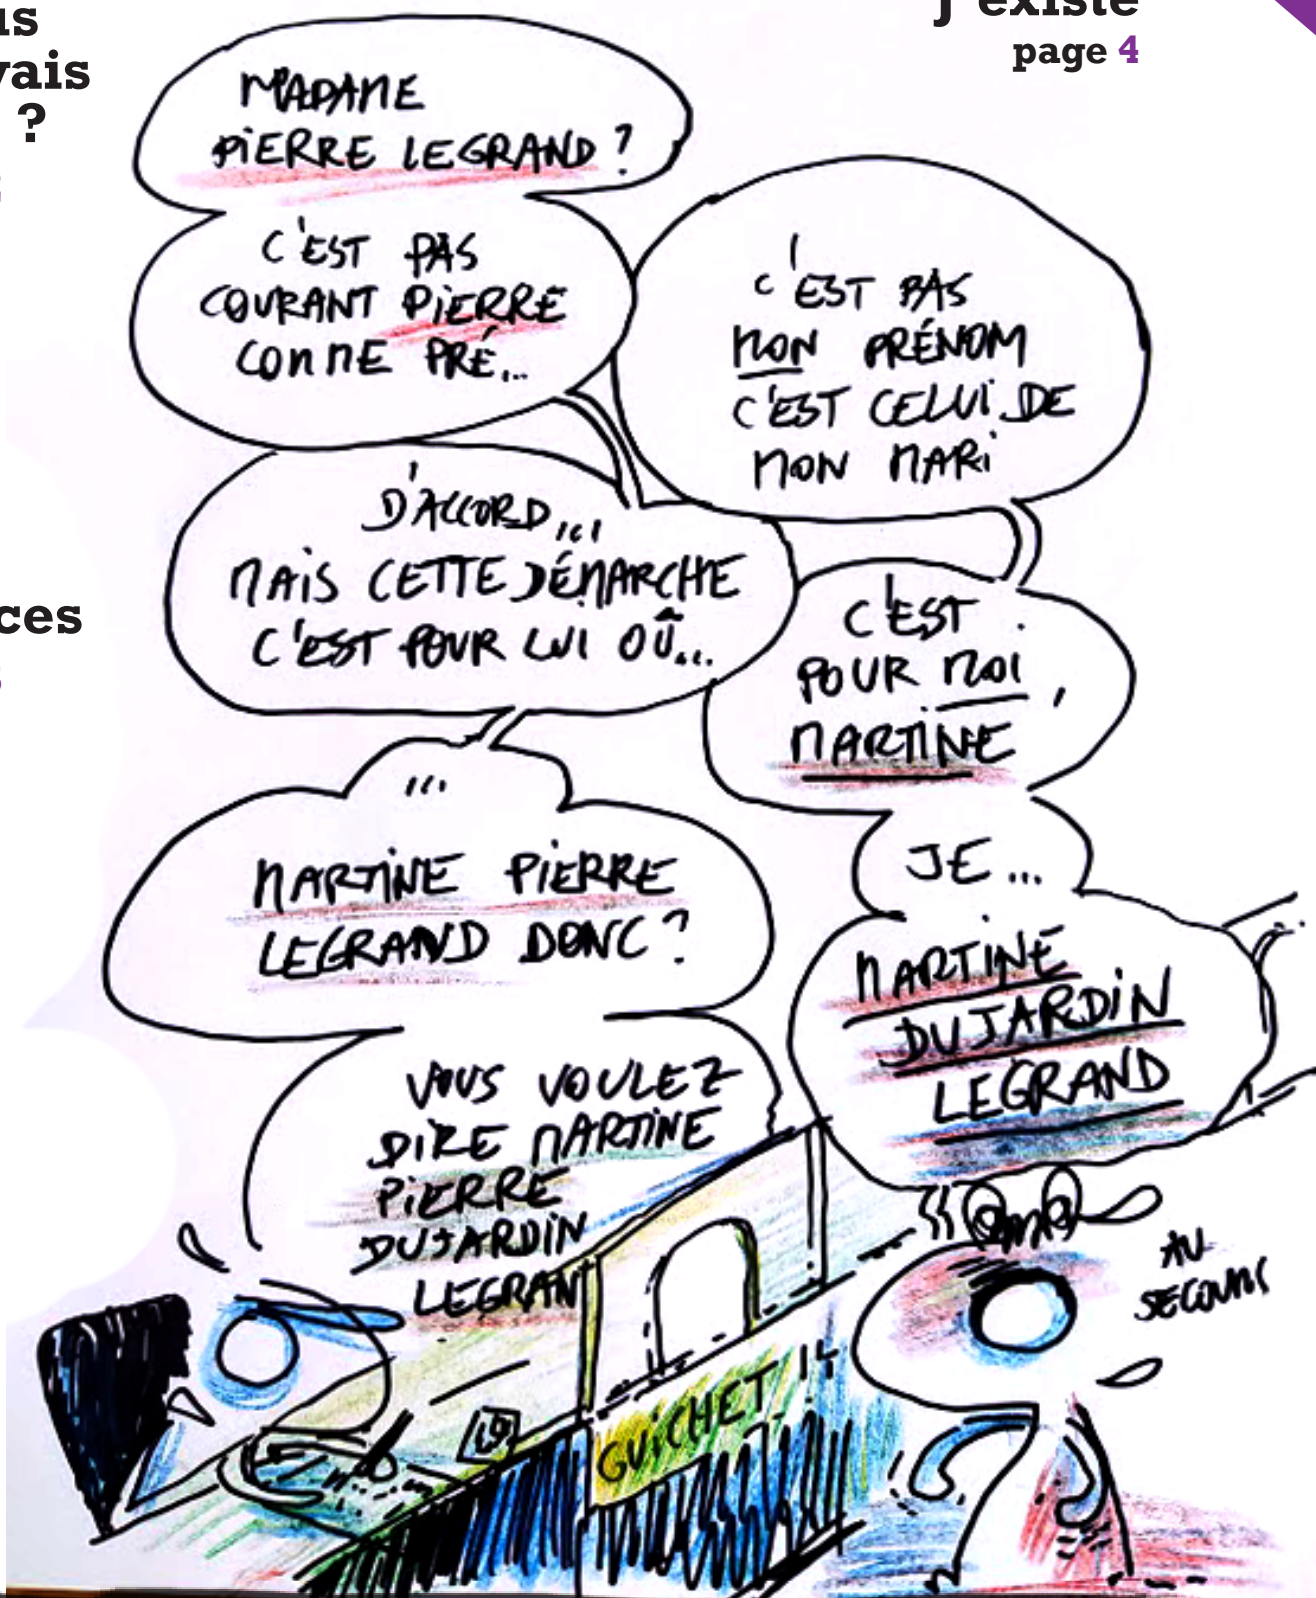 us
vais
?
j'existe
page 4
MADAME
PIERRE LEGRAND ?
C'EST PAS
COURANT PIERRE
COMME PRÉ...
C'EST PAS
MON PRÉNOM
C'EST CELUI DE
MON MARI
D'ACCORD...
MAIS CETTE DÉMARCHE
C'EST POUR LUI OÛ...
C'EST
POUR MOI,
MARTINE
...
MARTINE PIERRE
LEGRAND DONC ?
JE...
MARTINE
DUJARDIN
LEGRAND
VOUS VOULEZ
DIRE MARTINE
PIERRE
DUJARDIN
LEGRAN
AU
SECOURS
GUICHET 14
ces